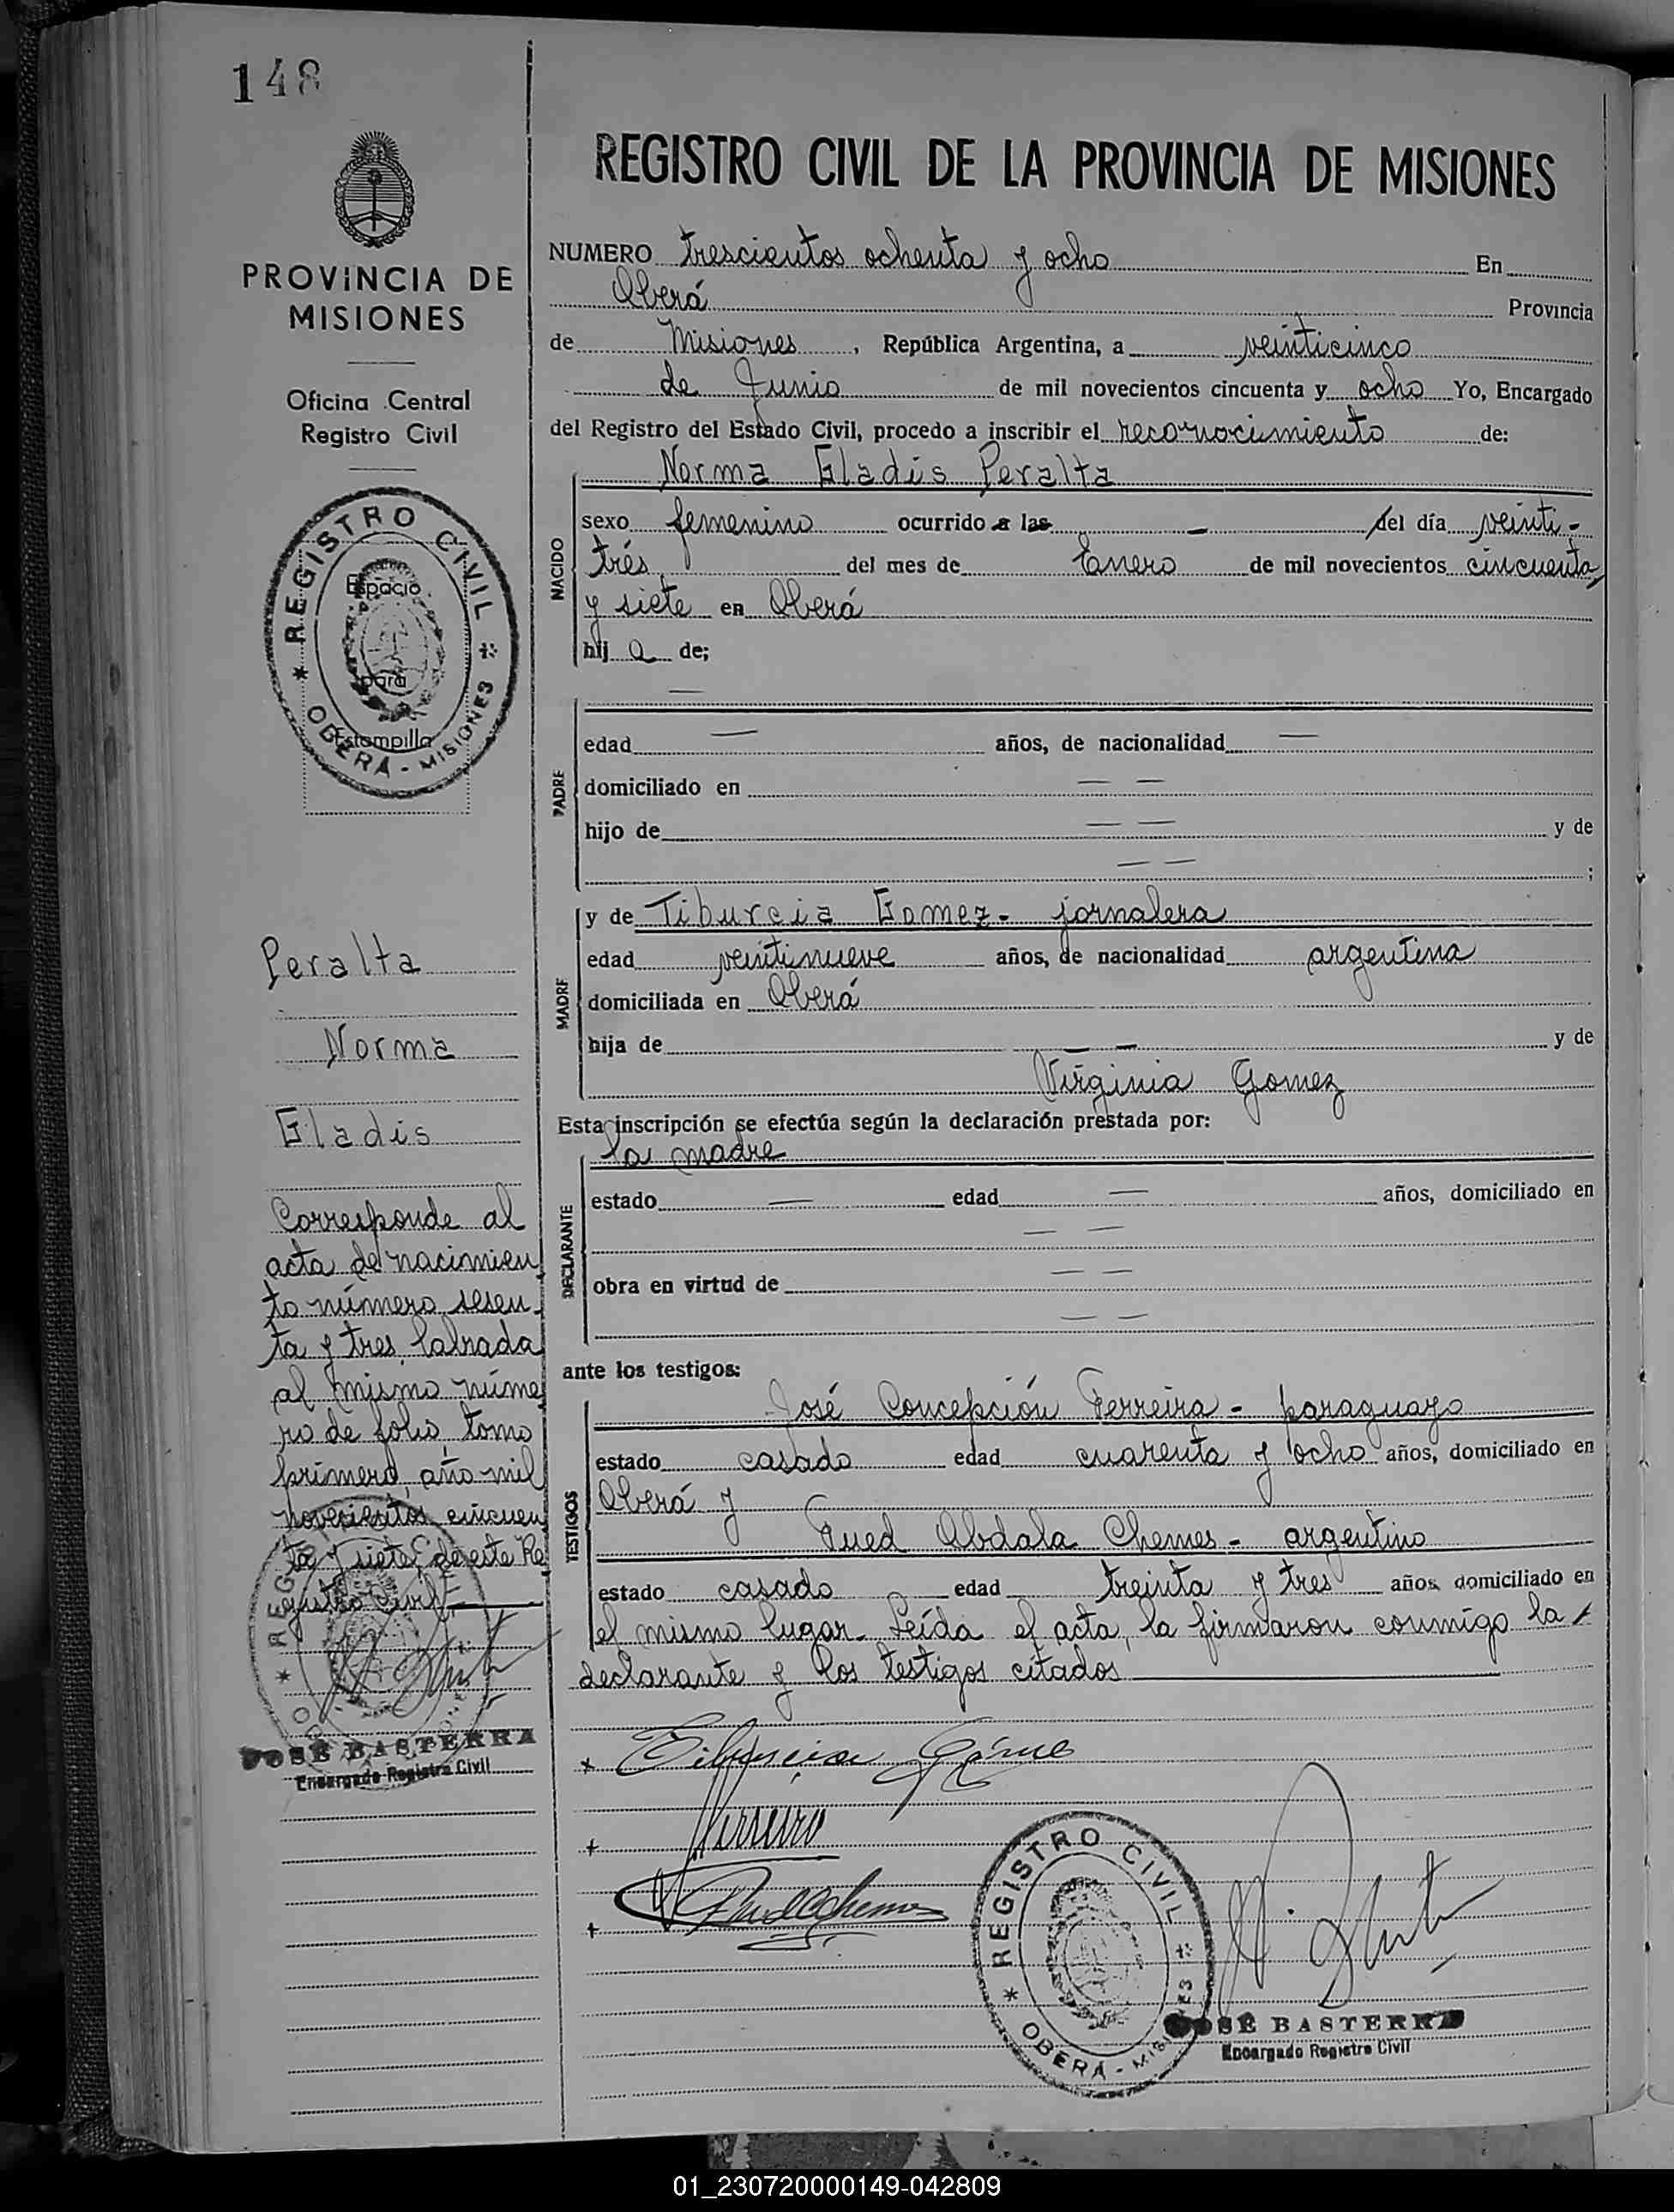 148
PROVINCIA DE
MISIONES
Oficina Central
Registro Civil
REGISTRO CIVIL
OBERÁ - MISIONES
Espacio
para
Estampilla
Peralta
Norma
Gladis
Corresponde al
acta de nacimien
to número sesen
ta y tres, labrada
al mismo núme
ro de folio, tomo
primero, año mil
novecientos cincuen
ta y siete, de este Re
gistro Civil
JOSÉ BASTERRA
Encargado Registro Civil
REGISTRO CIVIL DE LA PROVINCIA DE MISIONES
NUMERO trescientos ochenta y ocho En
Oberá Provincia
de Misiones, República Argentina, a veinticinco
de Junio de mil novecientos cincuenta y ocho Yo, Encargado
del Registro del Estado Civil, procedo a inscribir el reconocimiento de:
Norma Gladis Peralta
NACIDO
sexo femenino ocurrido a las — del día veinti-
trés del mes de Enero de mil novecientos cincuenta
y siete en Oberá
hij a de;
—
PADRE
edad — años, de nacionalidad —
domiciliado en — —
hijo de — — y de
— — ;
MADRE
y de Tiburcia Gomez - jornalera
edad veintinueve años, de nacionalidad argentina
domiciliada en Oberá
hija de — — y de
Virginia Gomez
Esta inscripción se efectúa según la declaración prestada por:
la madre
DECLARANTE
estado — edad — años, domiciliado en
— —
obra en virtud de — —
— —
ante los testigos:
TESTIGOS
José Concepción Ferreira - paraguayo
estado casado edad cuarenta y ocho años, domiciliado en
Oberá y
Fued Abdala Chemes - argentino
estado casado edad treinta y tres años, domiciliado en
el mismo lugar. Leída el acta, la firmaron conmigo la
declarante y los testigos citados
REGISTRO CIVIL
OBERÁ - MISIONES
JOSÉ BASTERRA
Encargado Registro Civil
01_230720000149-042809